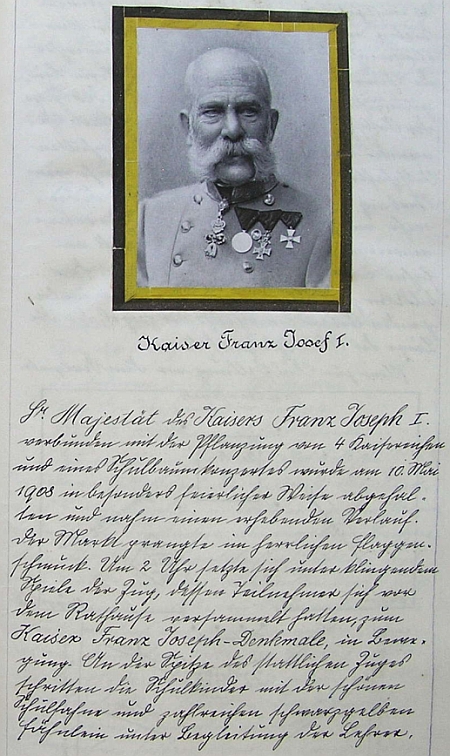 Kaiser Franz Josef I.
Sr. Majestät des Kaisers Franz Joseph I.
verbunden mit der Pflanzung von 4 Kaisereichen
und eines Schulbaumkonzertes wurde am 10. Mai
1908 in besonders feierlicher Weise abgehal-
ten und nahm einen erhebenden Verlauf.
Der Markt prangte im herrlichen Flaggen-
schmuck. Um 2 Uhr setzte sich unter klingendem
Spiele der Zug, dessen Teilnehmer sich vor
dem Rathause versammelt hatten, zum
Kaiser Franz Joseph-Denkmale, in Bewe-
gung. An der Spitze des stattlichen Zuges
schritten die Schulkinder mit der schönen
Schulfahne und zahlreichen schwarzgelben
Fähnlein unter Begleitung der Lehrer.